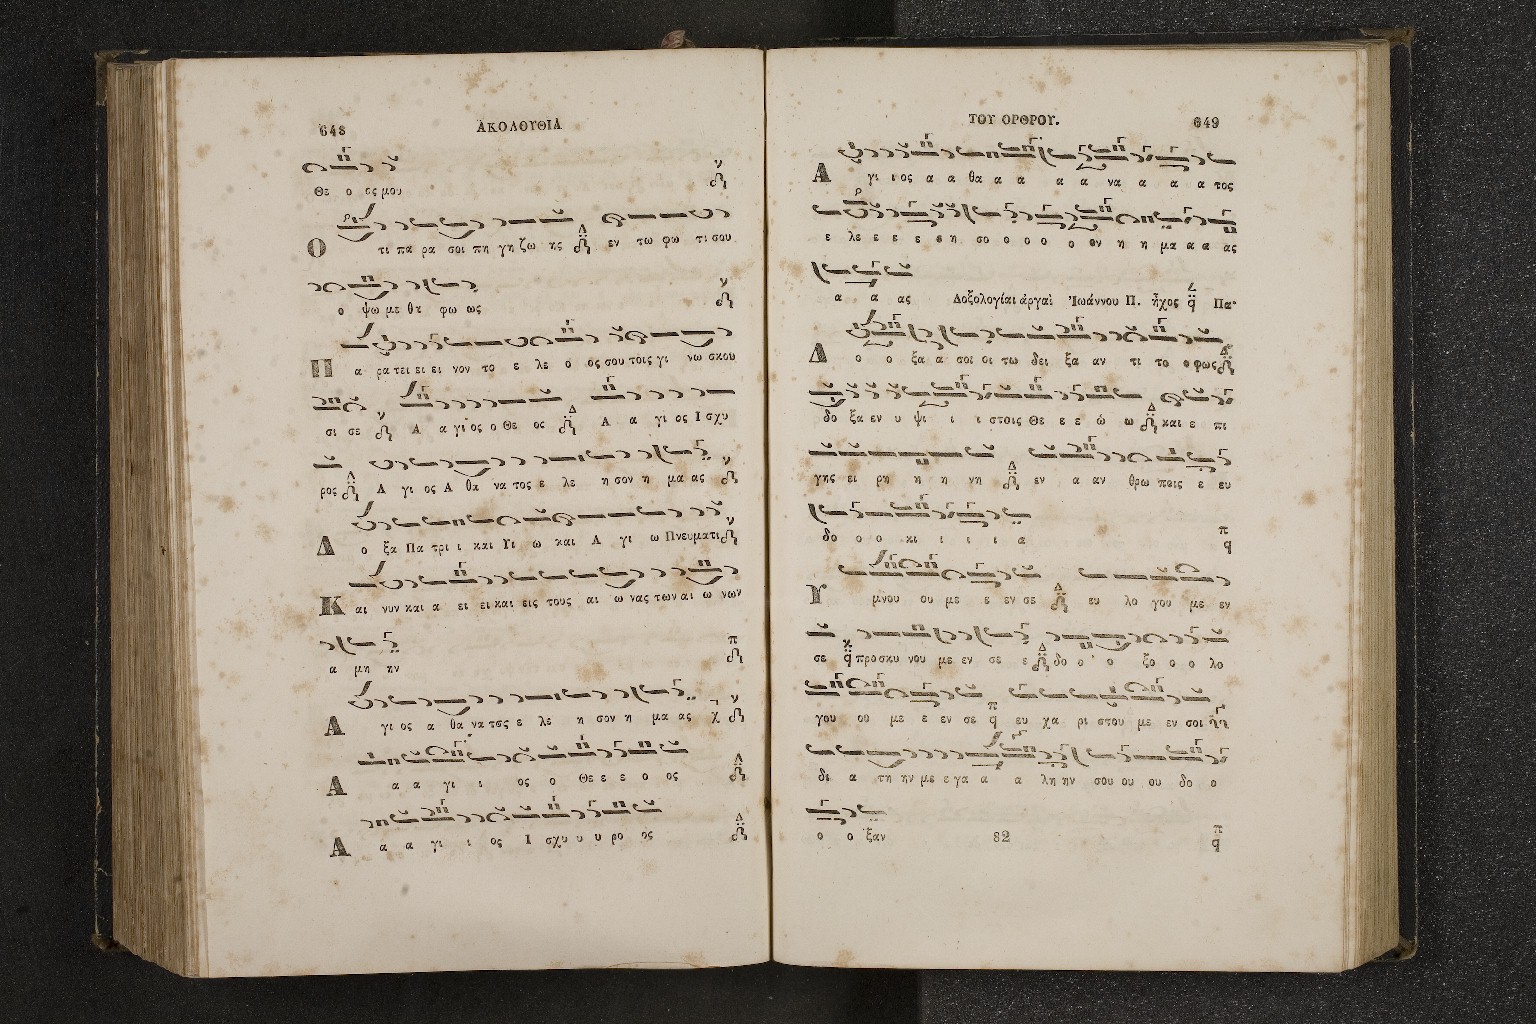 648 ΑΚΟΛΟΥΘΙΑ
Θε ο ος μου
Ο τι πα ρα σοι πη γη ζω ης εν τω φω τι σου
ο ψω με θα φω ως
Π α ρα τει ει ει νον το ε λε ο ος σου τοις γι νω σκου
σι σε Α α γι ος ο Θε ος Α α γι ος Ι σχυ
ρος Α γι ος Α θα να τος ε λε η σον η μα ας
Δ ο ξα Πα τρι ι και Υι ω και Α γι ω Πνευματι
Κ αι νυν και α ει ει και εις τους αι ω νας των αι ω νων
α μη ην
Α γι ος α θα να τος ε λε η σον η μα ας
Α α α γι ι ος ο Θε ε ε ο ος
Α α α γι ι ος Ι σχυ υ υ ρο ος
ΤΟΥ ΟΡΘΡΟΥ. 649
Α γι ι ος α α θα α α α α να α α α τος
ε λε ε ε ε ε η σο ο ο ο ο ον η η μα α α ας
α α ας Δοξολογίαι ἀργαὶ Ἰωάννου Π. ἦχος Πα
Δ ο ο ξα α σοι οι τω δει ξα αν τι το ο φως
δο ξα εν υ ψι ι ι στοις Θε ε ε ώ ω και ε πι
γης ει ρη η η νη εν α αν θρω ποις ε ευ
δο ο ο κι ι ι ι α
Υ μνου ου με ε εν σε ευ λο γου με εν
σε προσκυ νου με εν σε ε δο ο ο ξο ο ο λο
γου ου με ε εν σε ευ χα ρι στου με εν σοι
δι α τη ην με ε γα α α λη ην σου ου ου δο ο
ο ο ξαν 82